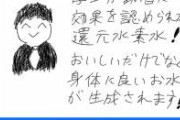 効果を認められた
還元水素水!
おいしいだけでなく
身体に良いお水
が生成されます!